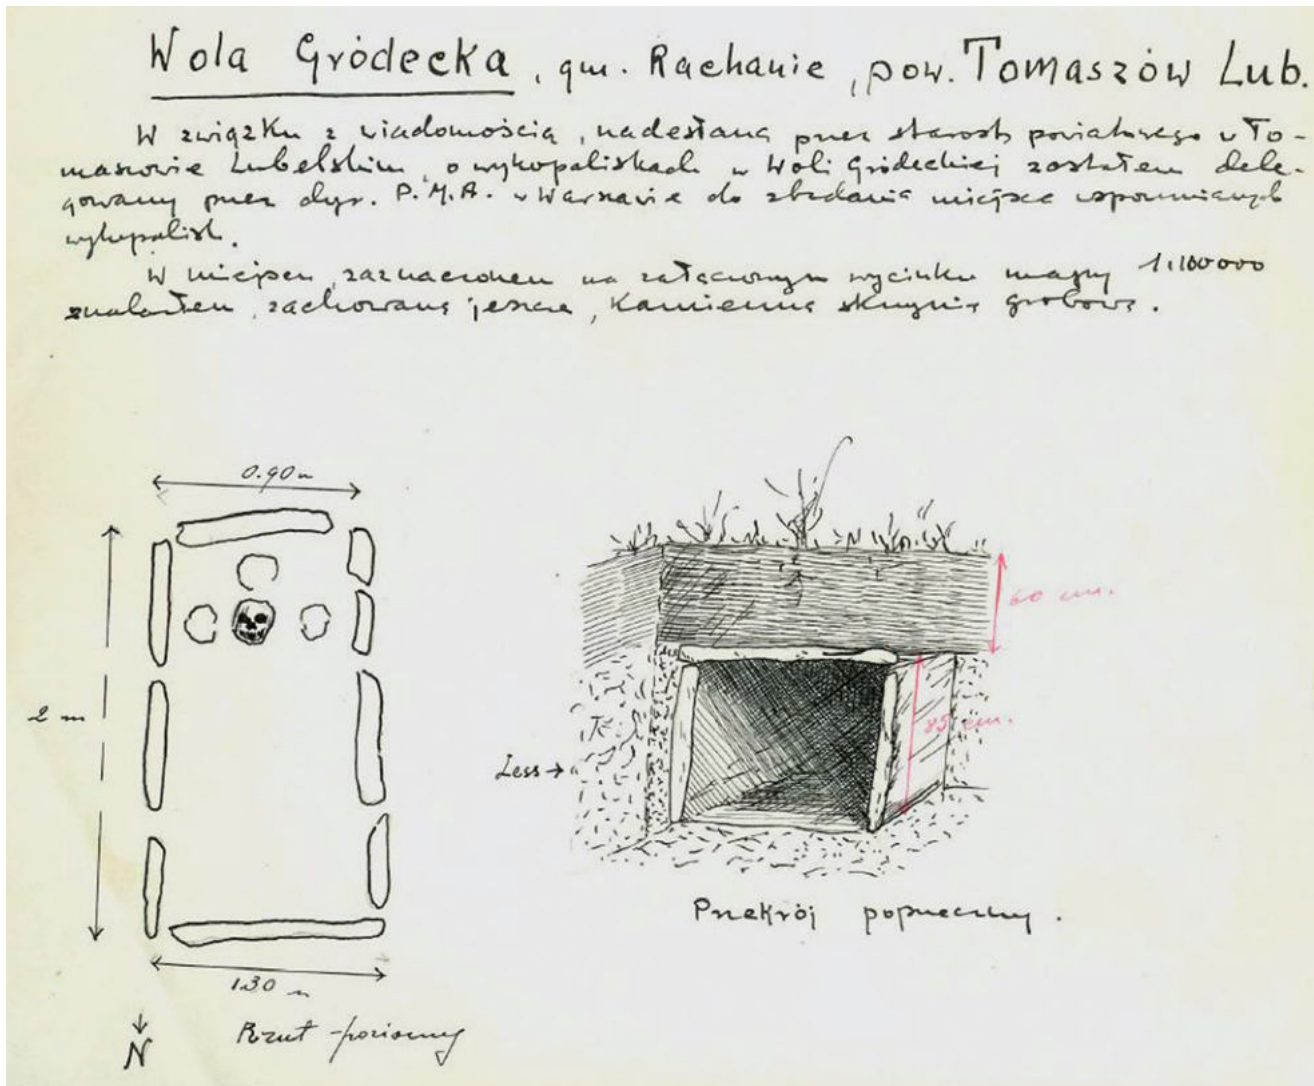 Wola Gródecka, gm. Rachanie, pow. Tomaszów Lub.
W związku z wiadomością, nadesłaną przez starostę powiatowego w To-
maszowie Lubelskim, o wykopaliskach w Woli Gródeckiej zostałem dele-
gowany przez dyr. P.M.A. w Warszawie do zbadania miejsca wspomnianych
wykopalisk.
W miejscu, zaznaczonem na załączonym wycinku mapy 1:100000
znalazłem, zachowaną jeszcze, kamienną skrzynię grobową.
0.90 m
60 cm.
2 m
85 cm.
Less →
Przekrój poprzeczny.
1.30 m
Rzut poziomy
N